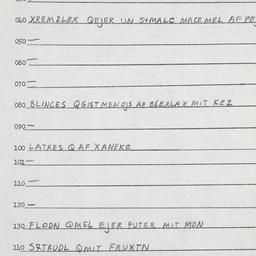 040 XREMZLEX QEJER UN SMALC MACEMEL AF PE
050 —
060 —
070 —
080 BLINCES QGISTMENOJS AF BLEXLAX MIT KEZ
090 —
100 LATKES Q AF XANEKE
101 —
110 —
120 —
130 FLODN QMEL EJER PUTER MIT MON
140 SRTRUDL QMIT FRUXTN